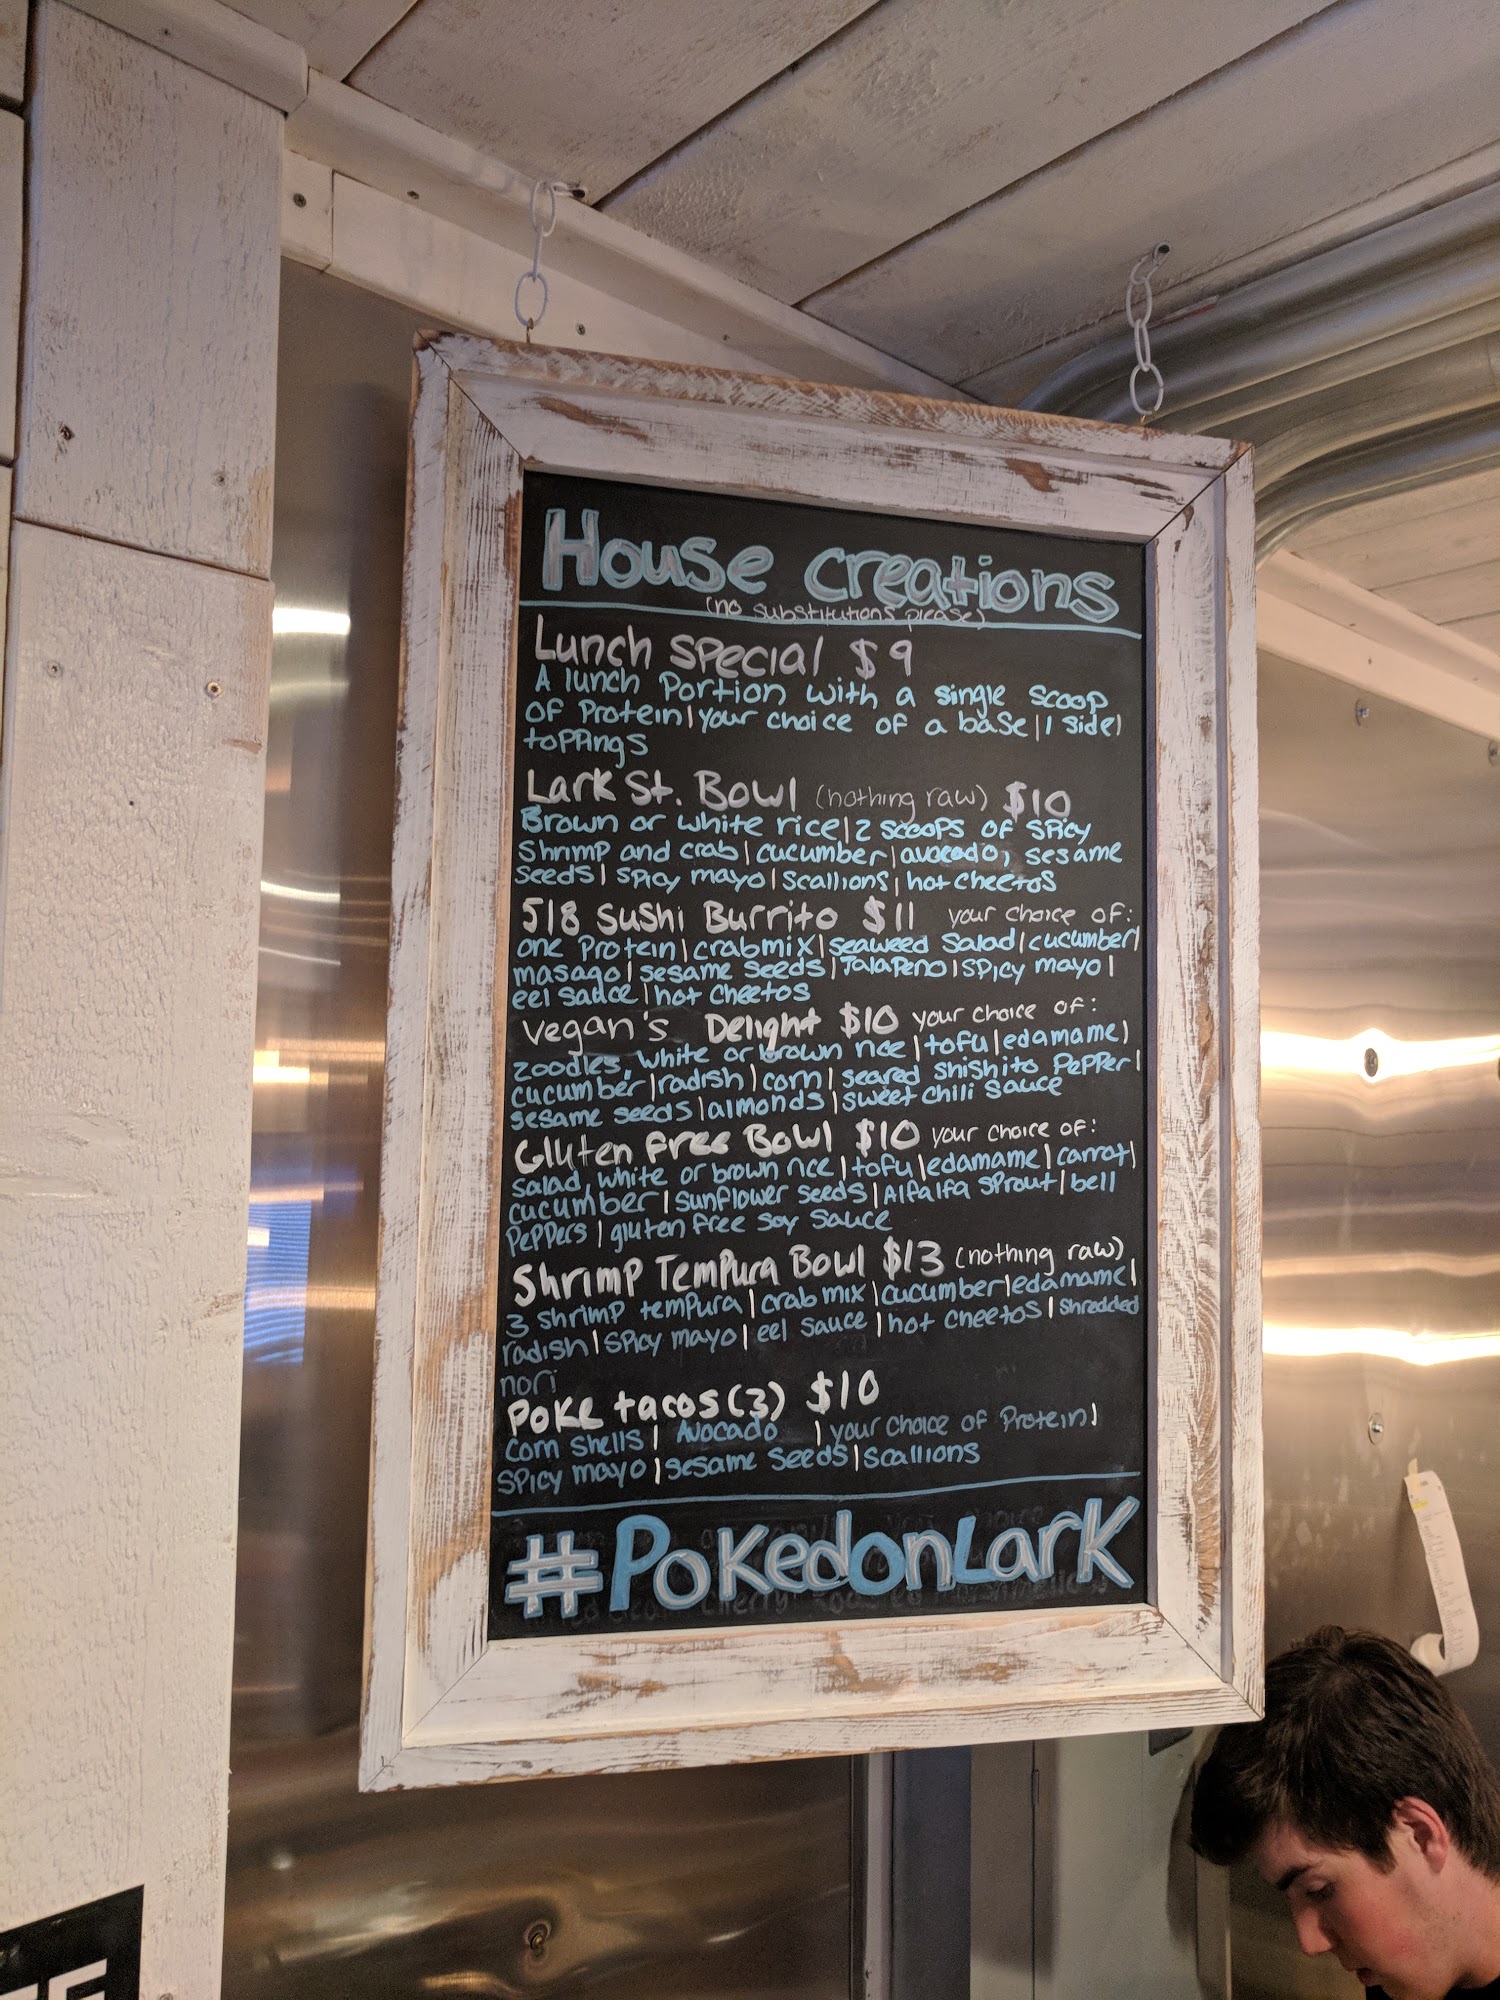 House creations
(no substitutions please)
Lunch Special $9
A lunch Portion with a single scoop
of Protein | your choice of a base | 1 side |
toppings
Lark St. Bowl (nothing raw) $10
Brown or white rice | 2 scoops of spicy
Shrimp and crab | cucumber | avocado, sesame
seeds | spicy mayo | scallions | hot cheetos
518 Sushi Burrito $11 your choice of:
one Protein | crabmix | seaweed salad | cucumber |
masago | sesame seeds | Jalapeno | spicy mayo |
eel sauce | hot cheetos
Vegan's Delight $10 your choice of:
zoodles, white or brown rice | tofu | edamame |
cucumber | radish | corn | seared shishito Pepper |
sesame seeds | almonds | sweet chili sauce
Gluten Free Bowl $10 your choice of:
salad, white or brown rice | tofu | edamame | carrot |
cucumber | sunflower seeds | Alfalfa sprout | bell
Peppers | gluten free soy sauce
Shrimp Tempura Bowl $13 (nothing raw)
3 shrimp tempura | crab mix | cucumber | edamame |
radish | spicy mayo | eel sauce | hot cheetos | shredded
nori
Poke tacos (3) $10
corn shells | Avocado | your choice of Protein |
spicy mayo | sesame seeds | scallions
#PokedonLark